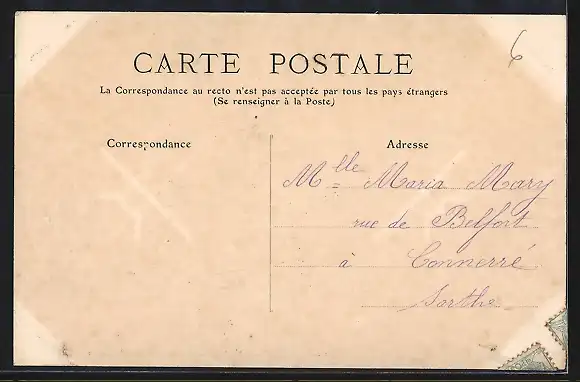 6
CARTE POSTALE
La Correspondance au recto n'est pas acceptée par tous les pays étrangers
(Se renseigner à la Poste)
Correspondance
Adresse
Mlle Maria Mary
rue de Belfort
à Connerré
Sarthe